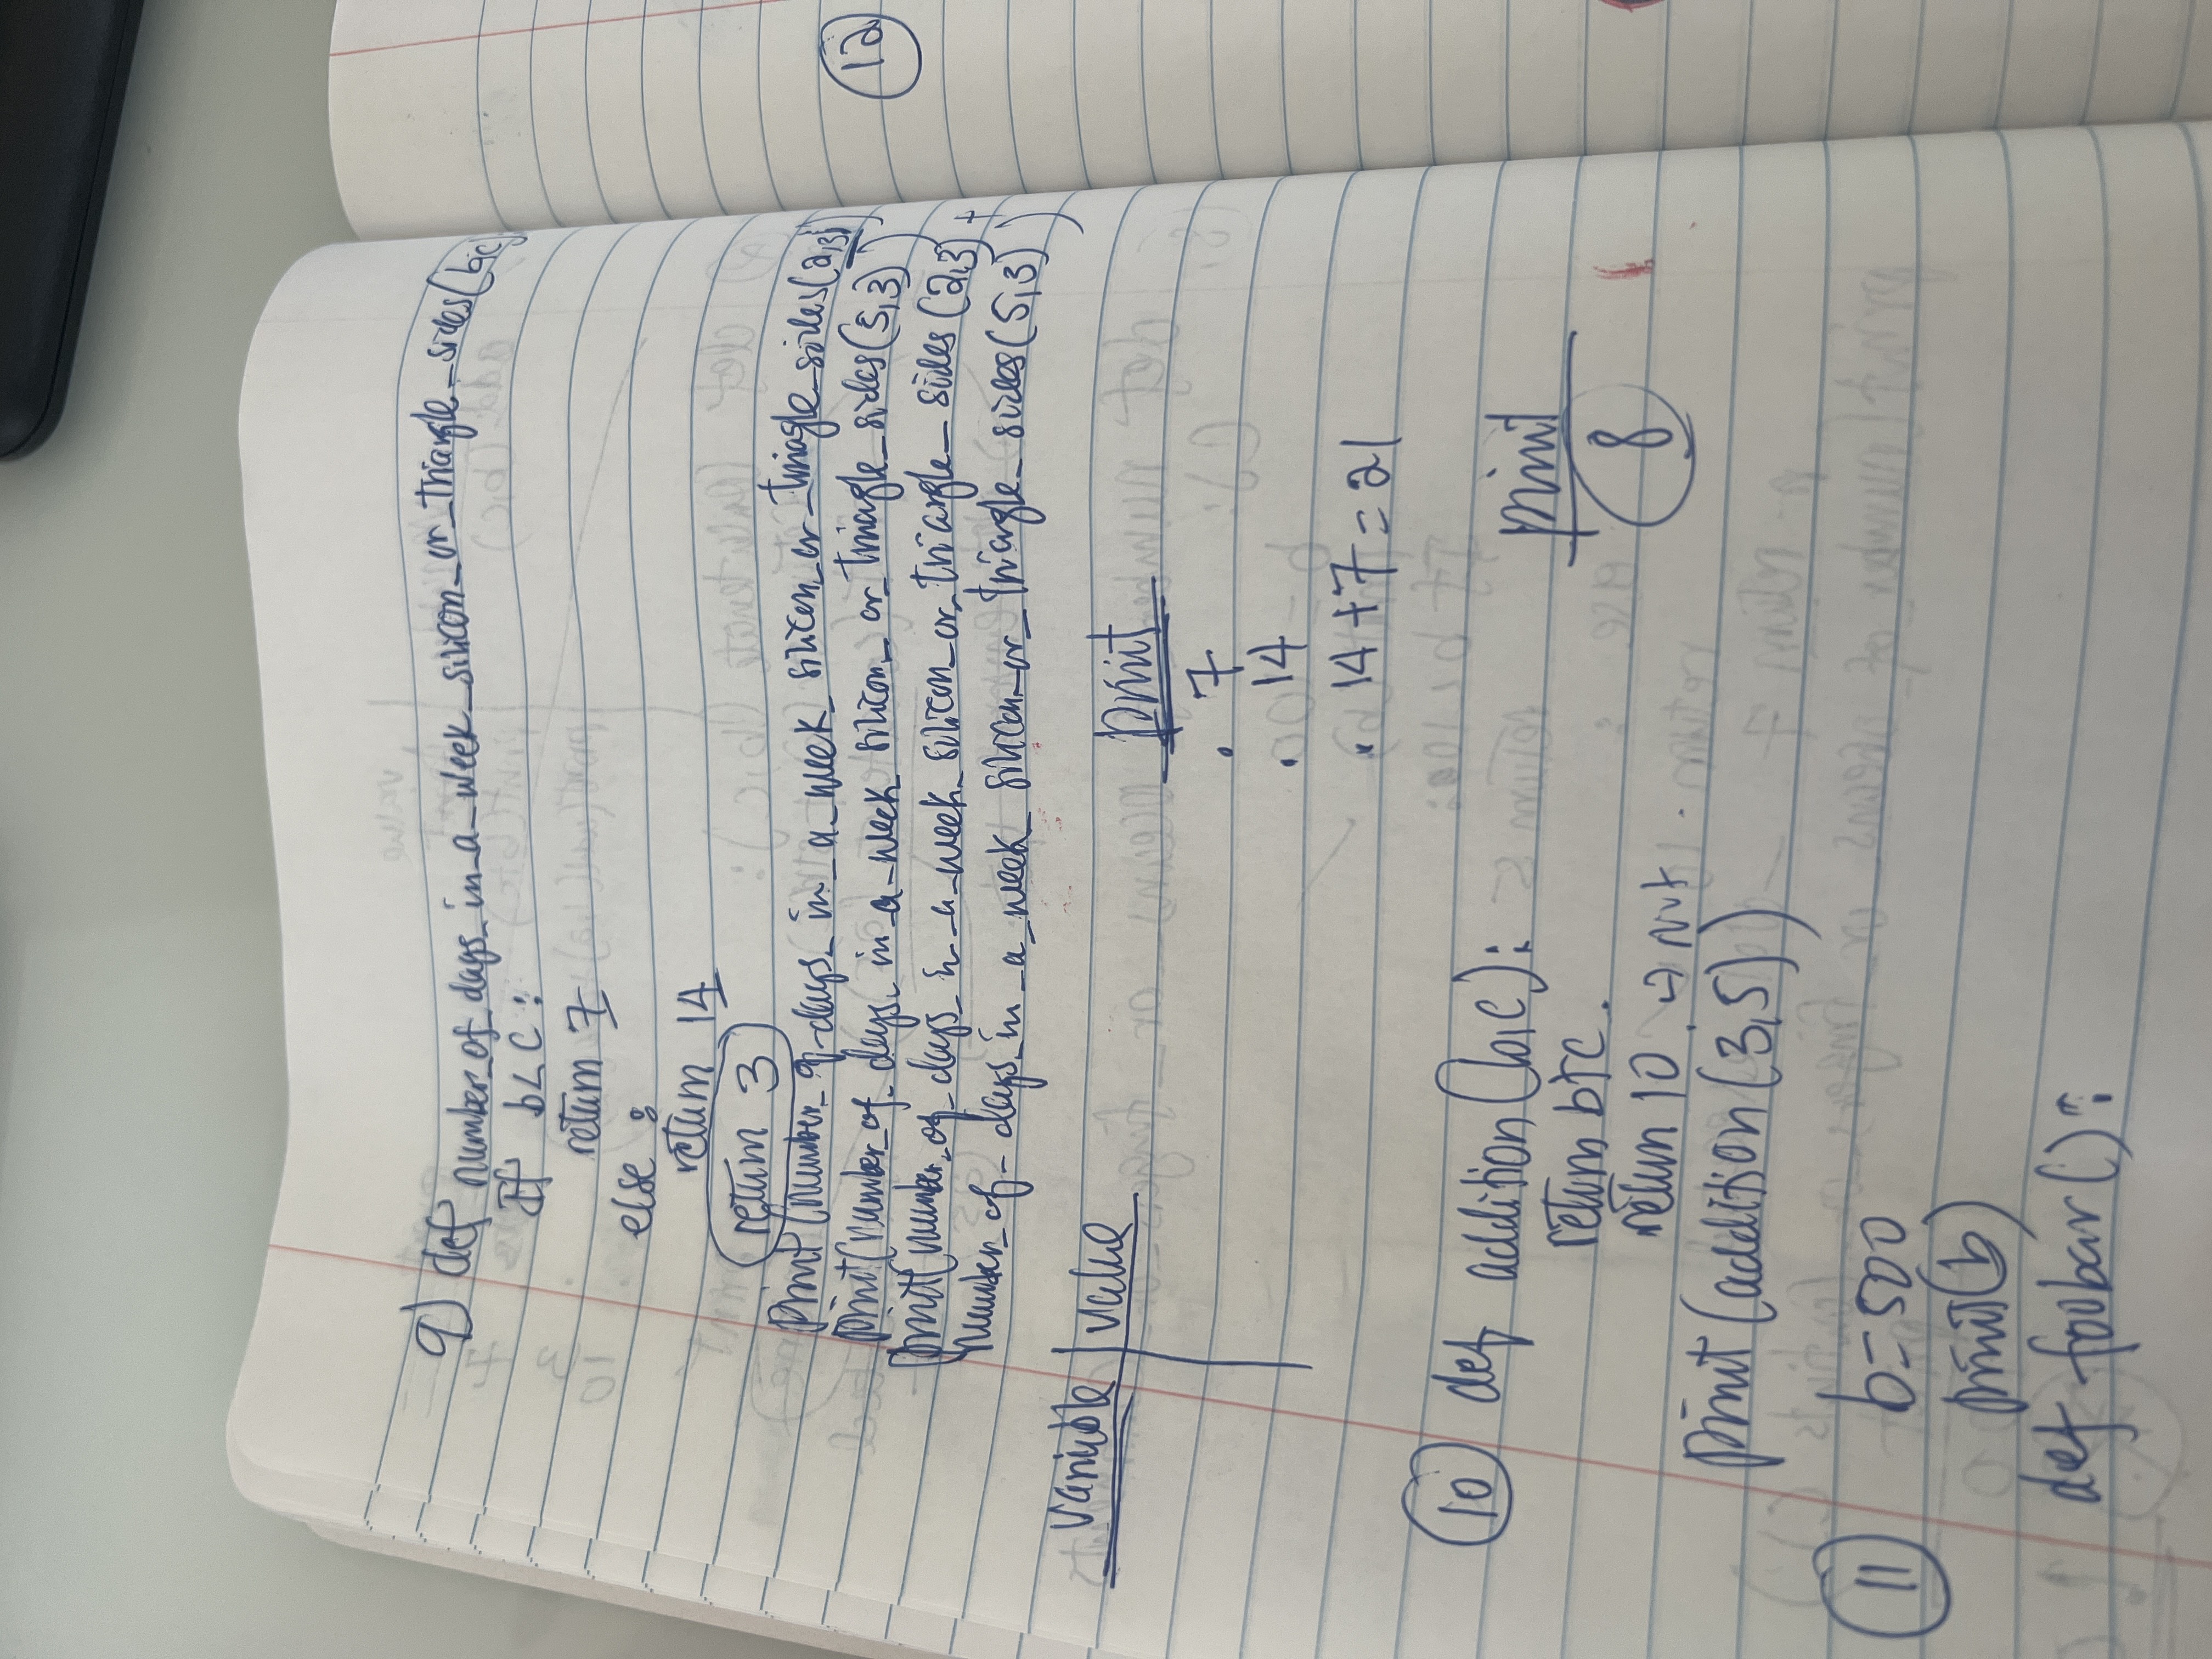 9) def number_of_days_in_a_week_silicon_or_triangle_sides(b,c)
If b<c:
return 7
else :
return 14
return 3
print(number_of_days_in_a_week_silicon_or_triangle_sides(2,3))
print(number_of_days_in_a_week_silicon_or_triangle_sides(5,3))
print(number_of_days_in_a_week_silicon_or_triangle_sides(2,3)+
number_of_days_in_a_week_silicon_or_triangle_sides(5,3))
variable value
print
. 7
. 14
. 14+7=21
10 def addition(b,c):
print
return b+c.
8
return 10. → Not .
print(addition(3,5))
11 b=500
print(b)
def foobar():
12